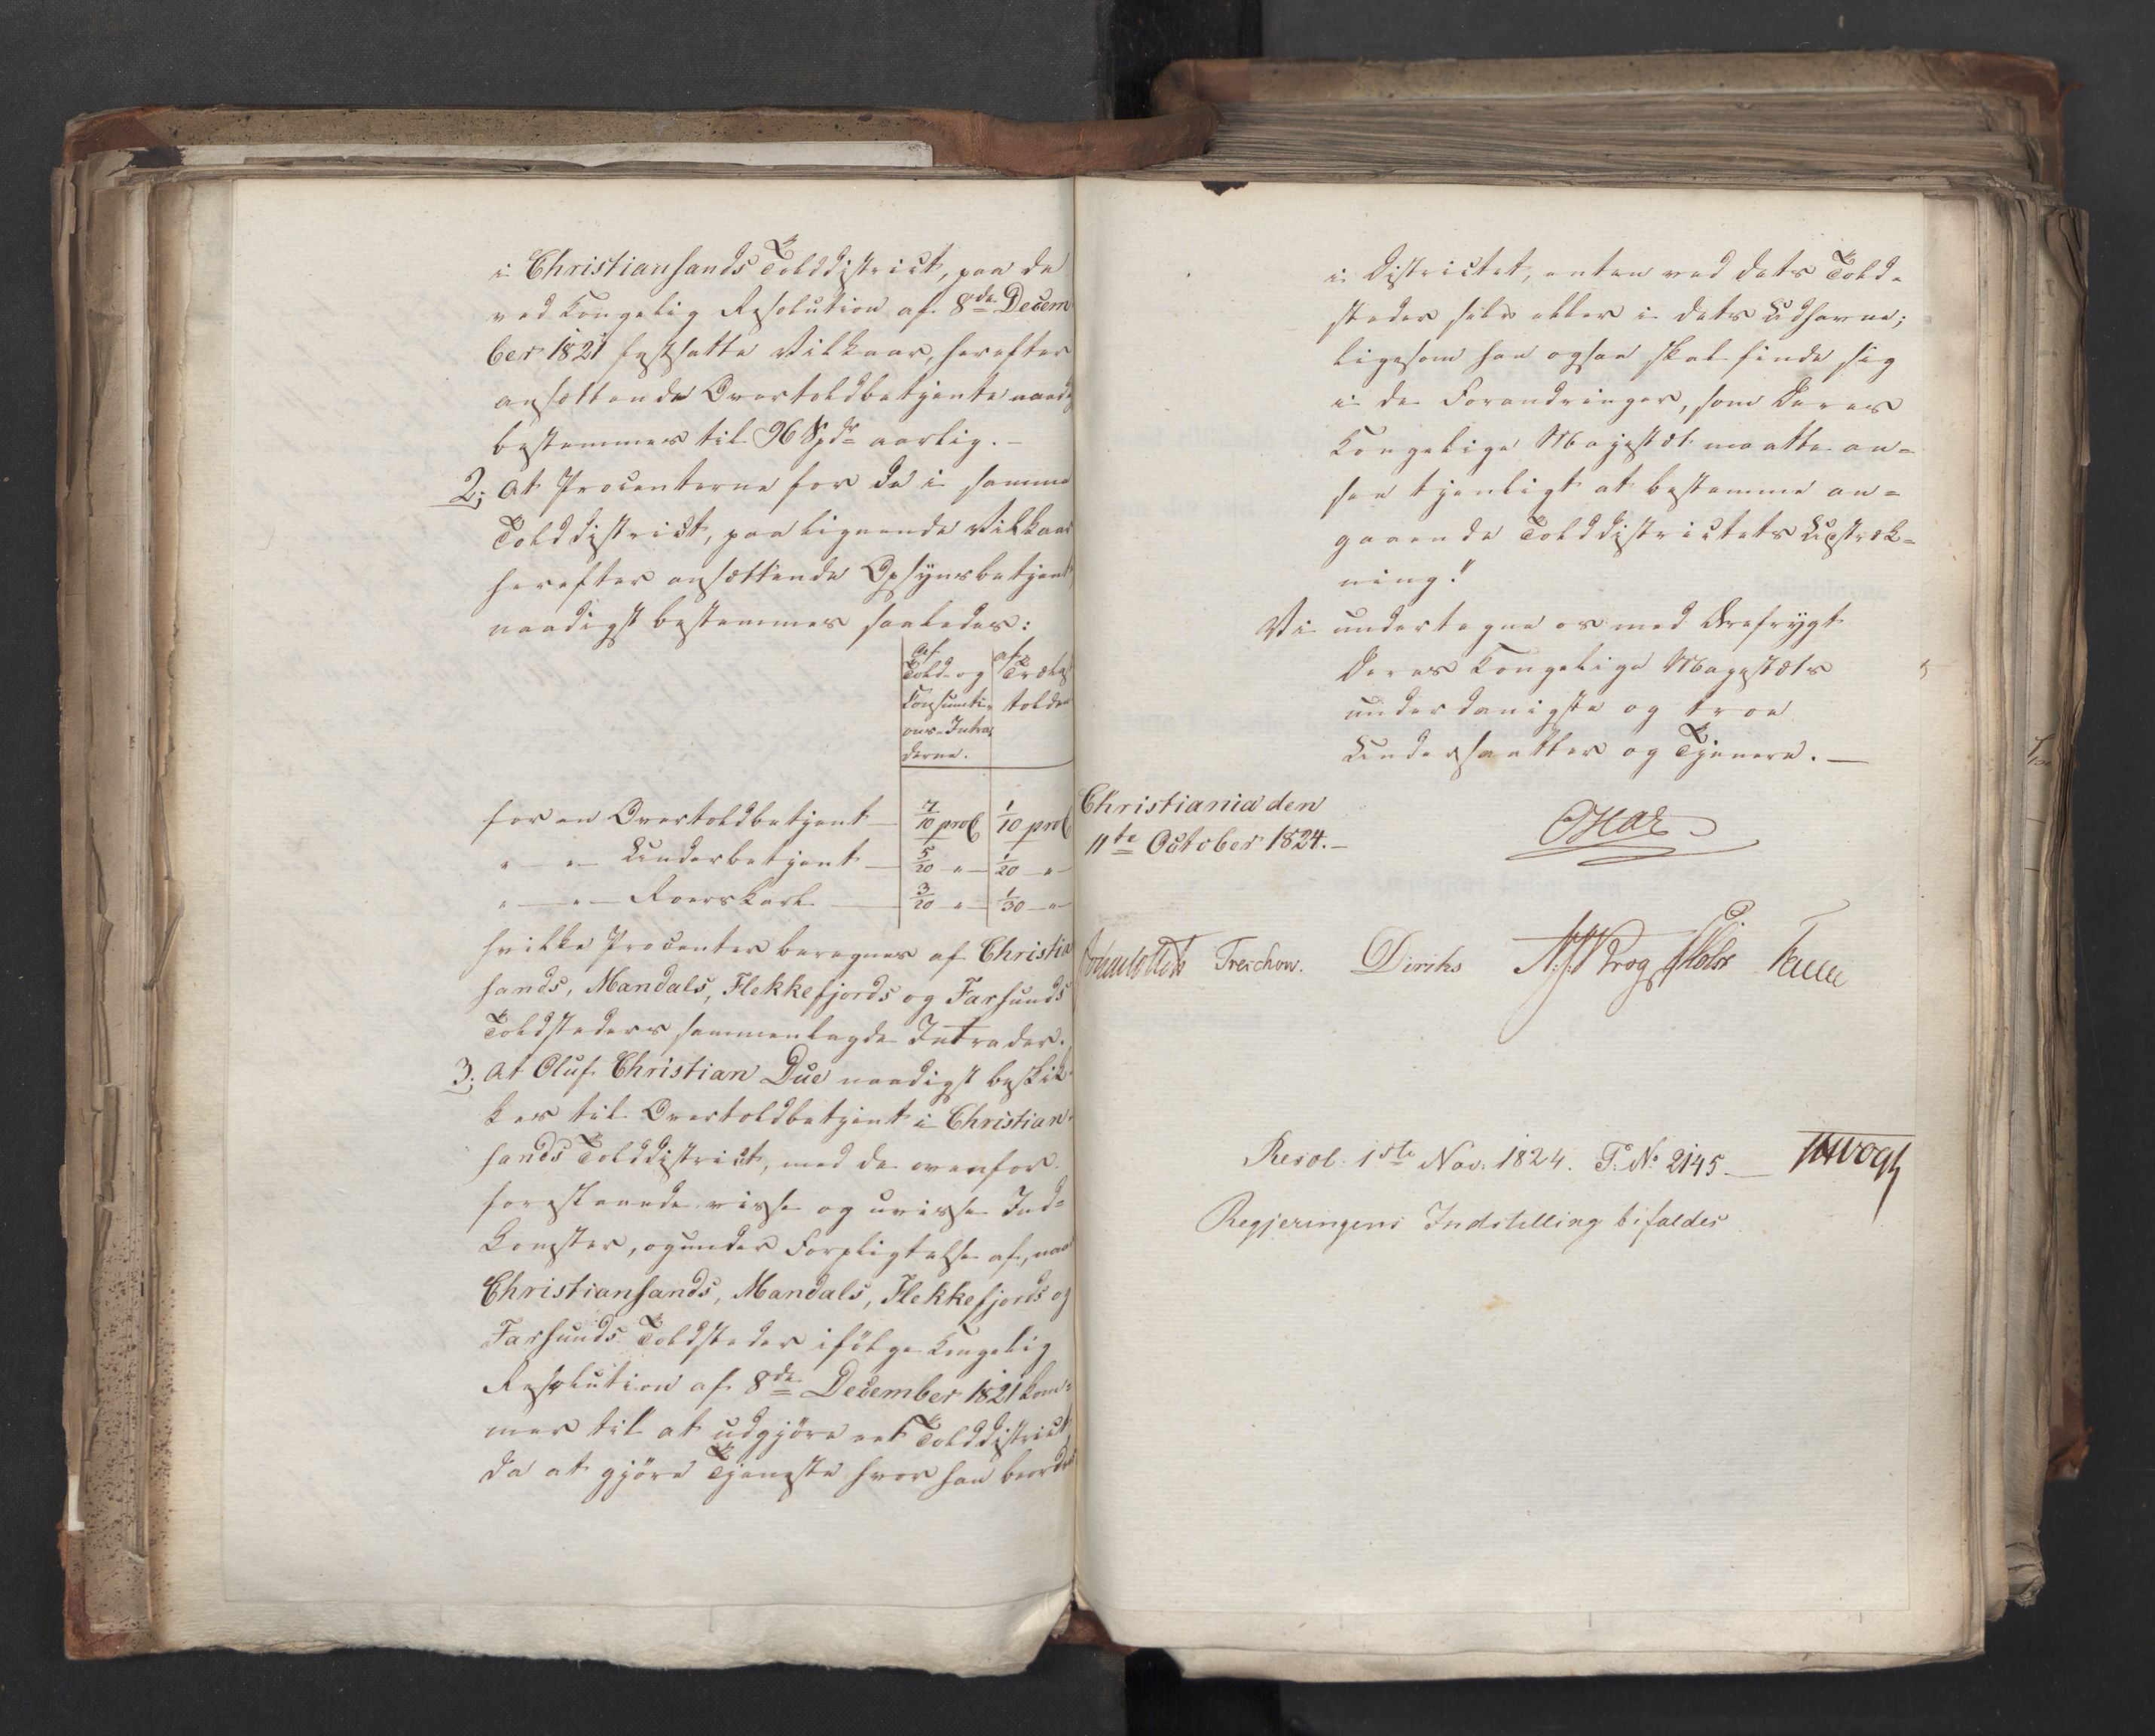 i Christiansands Tolddistrict, paa de
ved Kongelig Resolution af 8de Decem
ber 1821 fastsatte Vilkaar, herefter
ansættende Overtoldbetjente naadigst
bestemmes til 96 Spdr aarlig. –
2; At Procenterne for de i samme
Tolddistrict, paa lignende Vilkaar
herefter ansættende Opsynsbetjente
naadigst bestemmes saaledes:
af Told- og Consumtions-Intraderne. | af Trælasttolden
for en Overtoldbetjent — 7/10 proC | 1/10 proC
" — " — Underbetjent — 5/20 " — | 1/20 "
" — " — Roerskarl — 3/20 — " — | 1/30 — "
hvilke Procenter beregnes af Christian
sands, Mandals, Flekkefjords og Farsunds
Toldsteders sammenlagde Intrader.
3; At Oluf Christian Due naadigst beskik-
kes til Overtoldbetjent i Christian-
sands Tolddistrict, med de ovenfor
forestaaende visse og uvisse Ind-
komster, og under Forpligtelse af, naar
Christiansands, Mandals, Flekkefjords og
Farsunds Toldsteder ifølge Kongelig
Resolution af 8de December 1821 kom-
mer til at udgjöre eet Tolddistrict,
da at gjöre Tjeneste hvor han beordres
i Districtet, enten ved dets Told-
steder selv eller i dets Udhavne;
ligesom han ogsaa skal finde sig
i de Forandringer, som Deres
Kongelige Majestæt maatte an-
see tjenligt at bestemme an-
gaaende Tolddistrictets Udstræk-
ning."
Vi undertegne os med Ærefrygt
Deres Kongelige Majestæts
underdanigste og troe
Undersaatter og Tjenere. —
Christiania den
11te October 1824. –
Sommerfeldt Treschow. Diriks Krog Fasting
Resol. 1ste Nov. 1824. P. No 2145 — JHVogt
Regjeringens Indstilling bifaldes